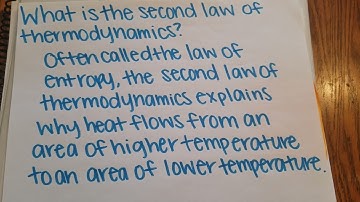 What is the second law of
thermodynamics?
Often called the law of
entropy, the second law of
thermodynamics explains
why heat flows from an
area of higher temperature
to an area of lower temperature.